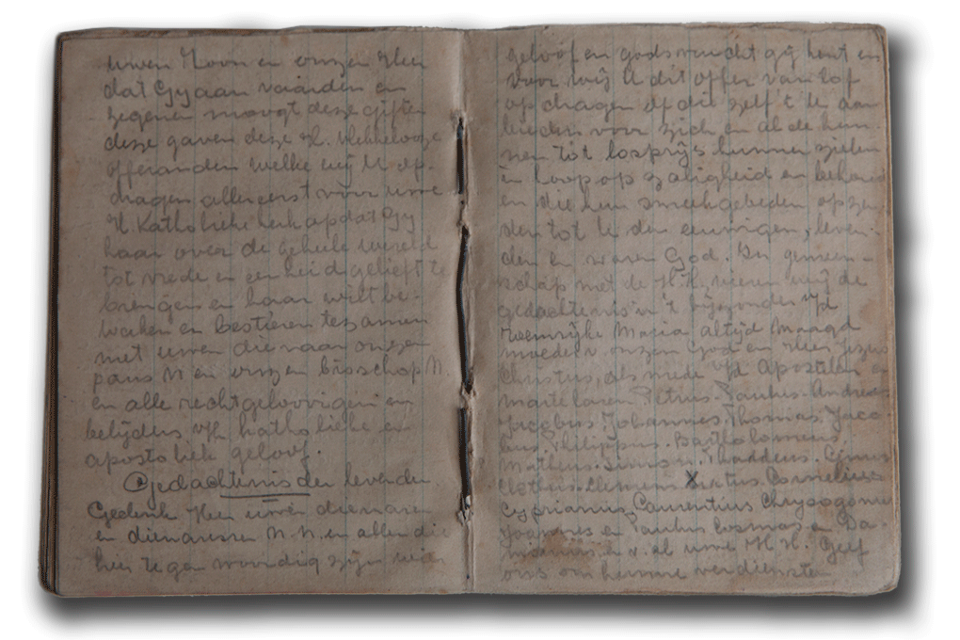 uwen Zoon en onzen Heer
dat Gij aanvaarden en
zegenen moogt deze giften
deze gaven deze H. vlekkelooze
offeranden welke wij U op-
dragen allereerst voor uwe
H. Katholieke kerk opdat Gij
haar over de geheele wereld
tot vrede en eenheid gelieft te
brengen en haar wilt be-
waken en bestieren tezamen
met uwen dienaar onzen
paus N en onzen bisschop N.
en alle rechtgeloovigen en
belijders v/h katholieke en
apostoliek geloof.
Gedachtenis der levenden
Gedenk Heer uwen dienaren
en dienaressen N. N. en allen die
hier tegenwoordig zijn wier
geloof en godsvrucht gij kent en
voor wij U dit offer van lof
opdragen of die zelf 't U aan
bieden voor zich en al de hun-
nen tot losprijs hunner zielen
en hoop op zaligheid en behoud
en die hun smeekgebeden opzen
den tot U den eeuwigen, leven-
den en waren God. In gemeen-
schap met de H.H. vieren wij de
gedachtenis in 't bijzonder v/d
roemrijke Maria altijd Maagd
moeder v. onzen God en Heer Jezus
Christus, als mede v/d Apostelen en
martelaren Petrus. Paulus. Andreas
Jacobus. Johannes. Thomas. Jaco
bus. Philippus. Bartholomeus.
Matheus. Simon. Thaddeus. Linus
Cletus. Clemens Xixtus. Cornelius
Cyprianus. Laurentius Chrysogonus
Joannes en Paulus Cosmas en Da-
mianus en v. al uwe H.H. Geef
ons om hunne verdiensten